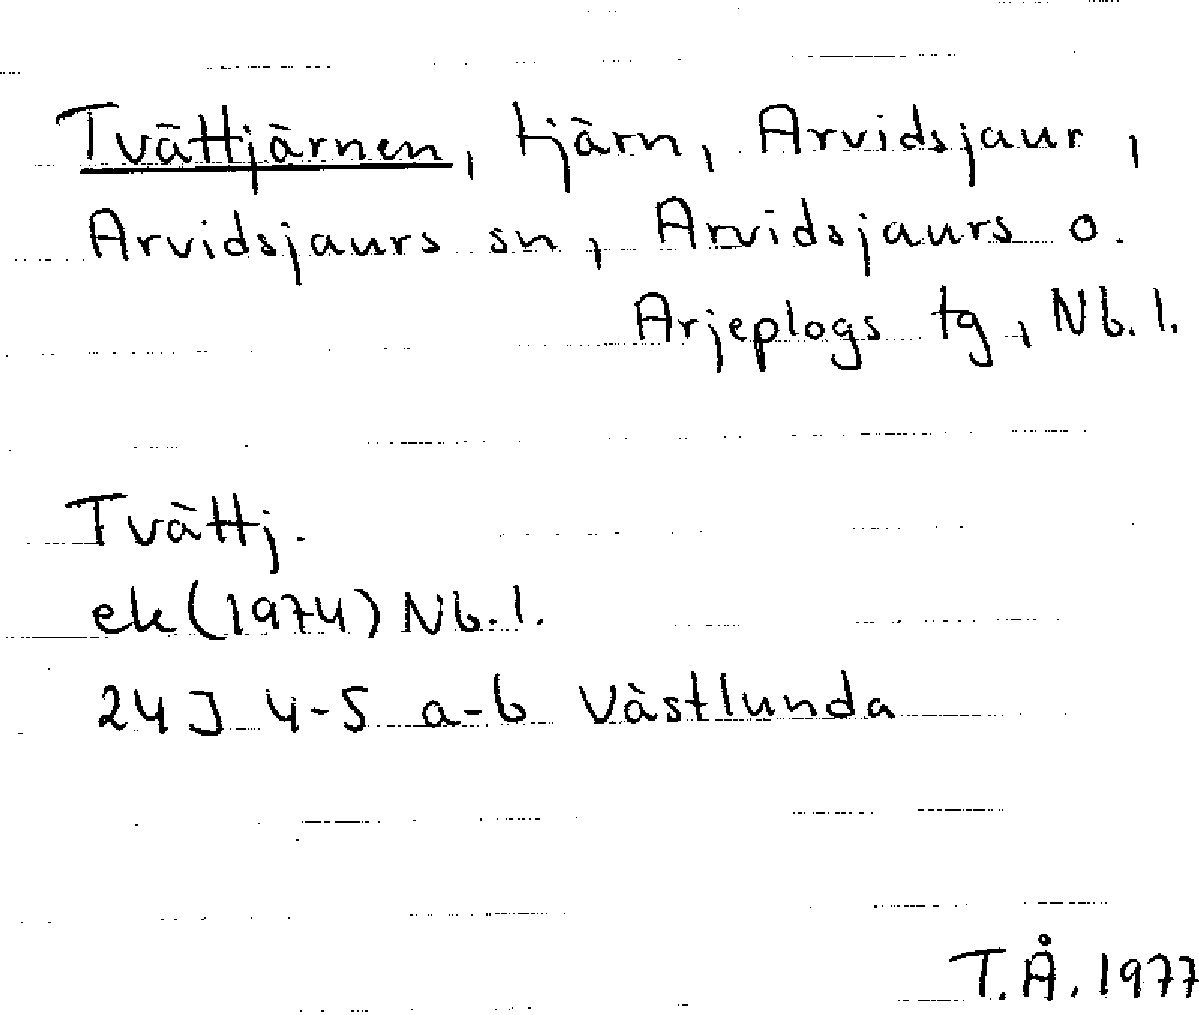 Tvättjärnen, tjärn, Arvidsjaur,
Arvidsjaurs sn, Arvidsjaurs o.
Arjeplogs tg, Nb. l.
Tvättj.
ek (1974) Nb. l.
24 J 4-5 a-b Västlunda
T.Å. 1977